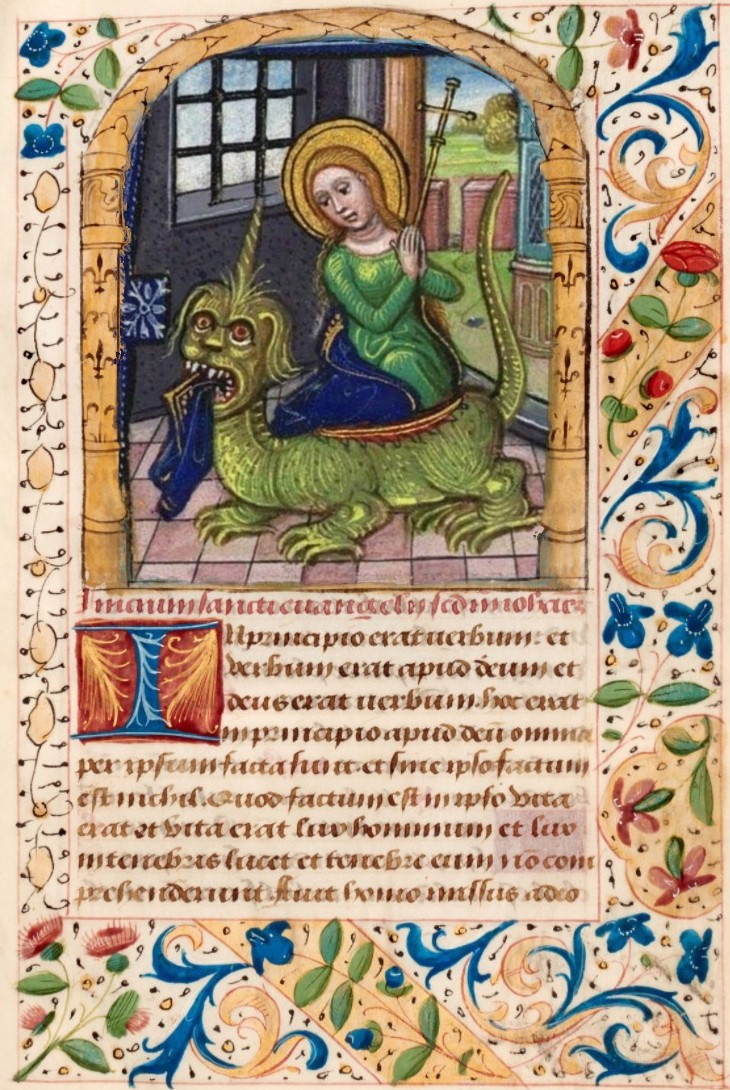 Inicium sancti euangelii scdm iohāēz
In principio erat uerbum: et
verbum erat apud deum et
deus erat uerbum. hoc erat
in principio apud deū omnia
per ipsum facta sunt et sine ipso factum
est nichil. Quod factum est in ipso vita
erat et vita erat lux hominum et lux
in tenebris lucet et tenebre eam nō com
prehenderunt fuit homo missus adeo